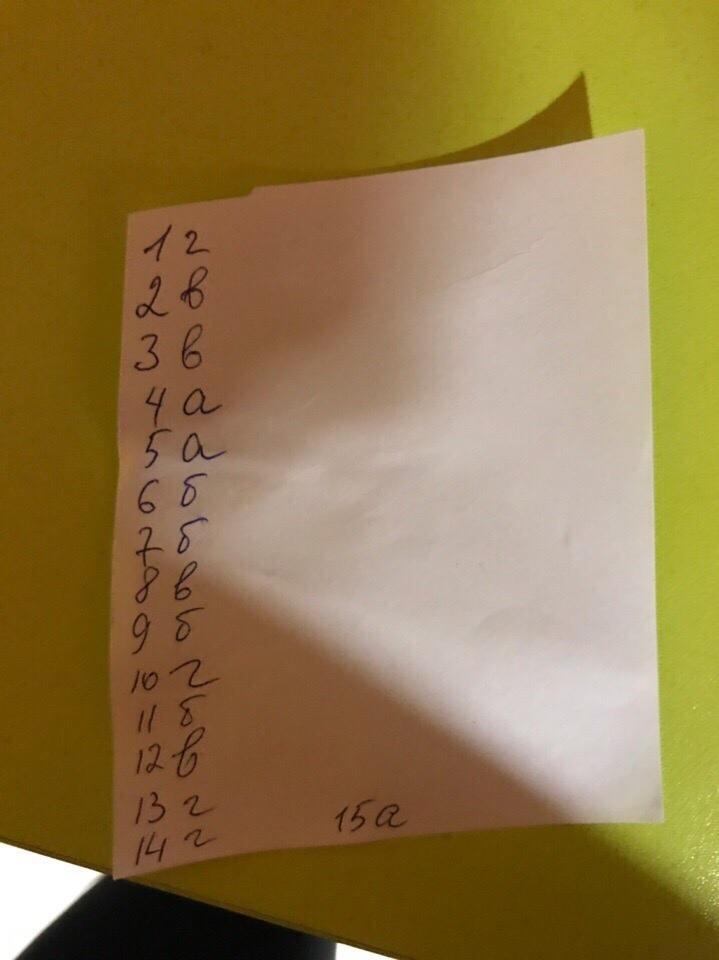 1 г
2 в
3 в
4 а
5 а
6 б
7 б
8 в
9 б
10 г
11 б
12 в
13 г
14 г
15 а